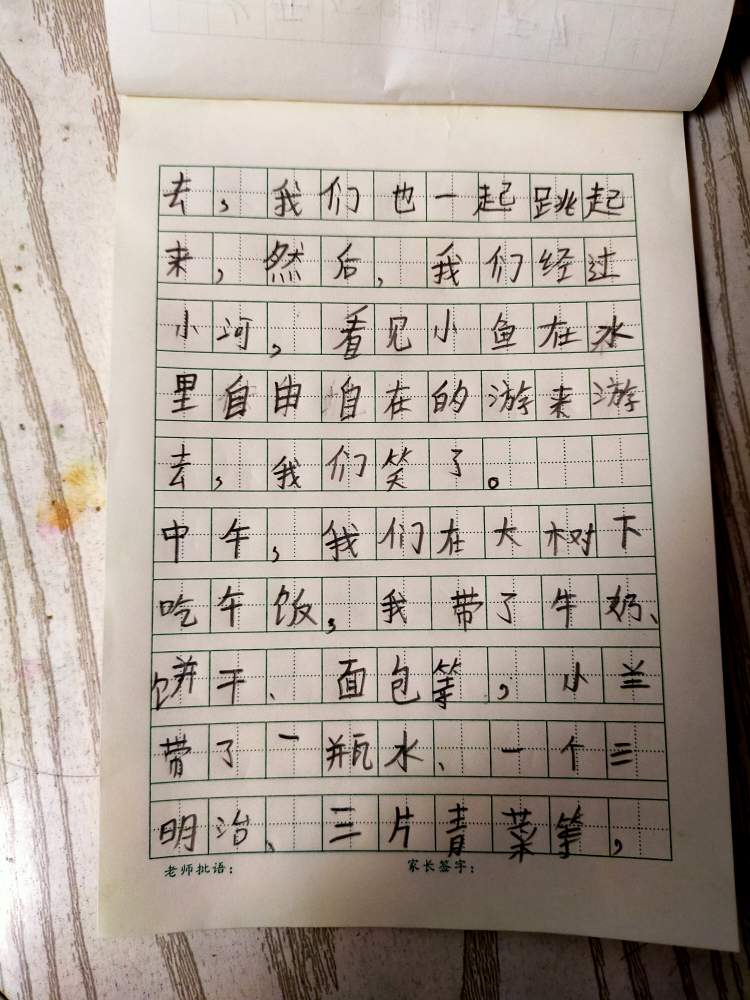 去，我们也一起跳起
来，然后，我们经过
小河，看见小鱼在水
里自由自在的游来游
去，我们笑了。
中午，我们在大树下
吃午饭，我带了牛奶、
饼干、面包等，小兰
带了一瓶水、一个三
明治、三片青菜等，
老师批语：
家长签字：